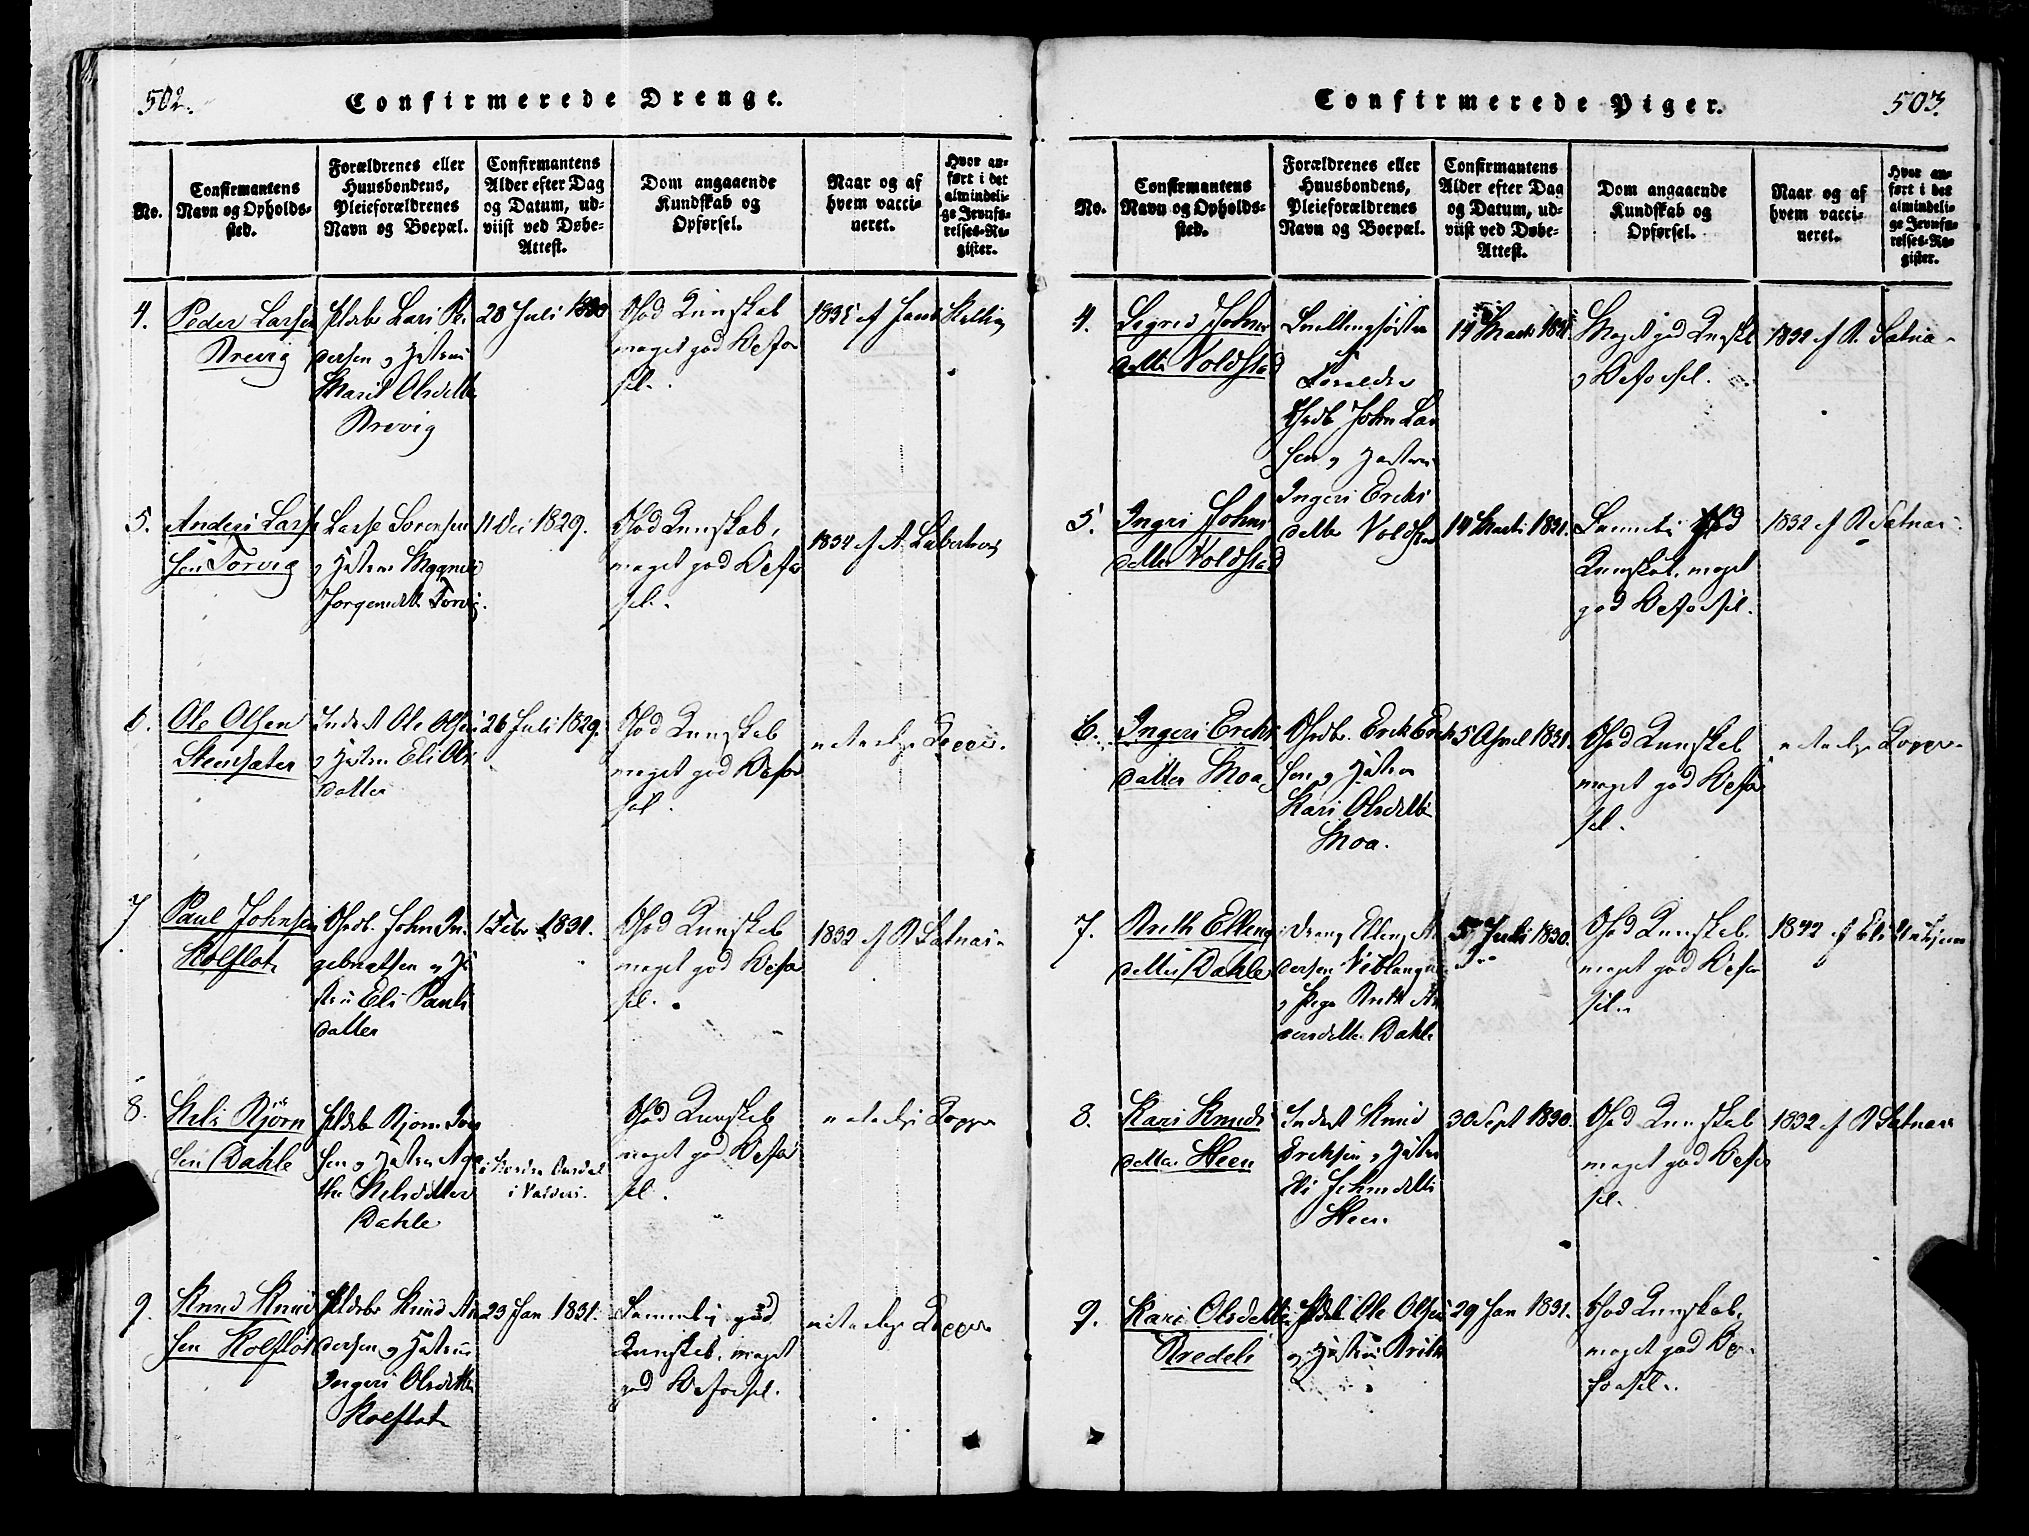 502.
Confirmerede Drenge.
No.
Confirmantens
Navn og Opholds-
sted.
Forældrenes eller
Huusbondens,
Pleieforældrenes
Navn og Boepæl.
Confirmantens
Alder efter Dag
og Datum, ud-
viist ved Døbe-
Attest.
Dom angaaende
Kundskab og
Opførsel.
Naar og af
hvem vacci-
neret.
Hvor an-
ført i det
almindeli-
ge Jevnfø-
relses-Re-
gister.
4.
Peder Larsen
Brevig
Lars Pe
dersen og Hustrue
Marit Olsdatter
Brevig
28 Juli 1830
God Kunskab
meget god Opfør
sel.
1835 af Jans
5.
Anders Lars
sen Torvig
Lars Sorensen
og Hustru Magnild
Jorgensdt. Torvig.
11 Dec 1829.
God Kunskab,
meget god Opfør
sel.
1834 af A.
6.
Ole Olsen
Steensæter
Inderst Ole Olsen
og Hustru Eli Ols
datter
26 Juli 1829.
God Kunskab
meget god Opfør
sel.
naturlige Kopper.
7.
Paul Johnsen
Kolflot
Grdb. John In
gebrigtsen og Hu
stru Eli Pauls
datter
1 Febr 1831.
God Kunskab
meget god Opfør
sel.
1832 af R Satnæs
8.
Nels Bjørn
sen Dahle
Bjorn Iver
sen og Hustru Aga
the Nelsdatter
Dahle
i Valders.
God Kunskab
meget god Opfør
sel.
naturlige Kopper
9.
Knud Knud
sen Kolflot
Knud An
dersen og Hustrue
Ingeri Olsdatter
Kolflot
23 Jan 1831.
Temmelig god
Kunskab, meget
god Opførsel.
naturlige Kopper
503.
Confirmerede Piger.
No.
Confirmantens
Navn og Opholds-
sted.
Forældrenes eller
Huusbondens,
Pleieforældrenes
Navn og Boepæl.
Confirmantens
Alder efter Dag
og Datum, ud-
viist ved Døbe-
Attest.
Dom angaaende
Kundskab og
Opførsel.
Naar og af
hvem vacci-
neret.
Hvor an-
ført i det
almindeli-
ge Jevnfø-
relses-Re-
gister.
4.
Segrid Johns
datter Voldstad
Tvillingsøstre
Foreldre
Grdb John Lar
sen og Hustrue
Ingeri Ericks
datter Voldstad
14 Marts 1831
Meget god Kunsk.
og Opførsel.
1832 af R. Satnæs
5.
Ingri Johns
datter Voldstad
14 Marts 1831.
Temmelig god
Kunskab, meget
god Opførsel.
1832 af R Satnæs
6.
Ingeri Ericks
datter Moa
Grdb. Erick Erick
sen og Hustrue
Kari Olsdatter
Moa.
5 April 1831.
God Kunskab
meget god Opfør
sel.
naturlige Kopper
7.
Brith Elling
datter Dahle
Dreng Elling An
dersen
og Pige Brith An
dersdatter Dahle
5 Juli 1830.
God Kunskab
meget god Opfør
sel.
1842 af
8.
Kari Knuds
datter Steen
Inderst Knud
Ericksen og Hustru
Steen
30 Sept 1830.
God Kunskab
meget god Opfør
sel.
1832 af R Satnæs
9.
Kari Olsdatter
Bredeli
Ole Olsen
og Hustru Brith
29 Jan 1831.
God Kunskab,
meget god Op-
førsel.